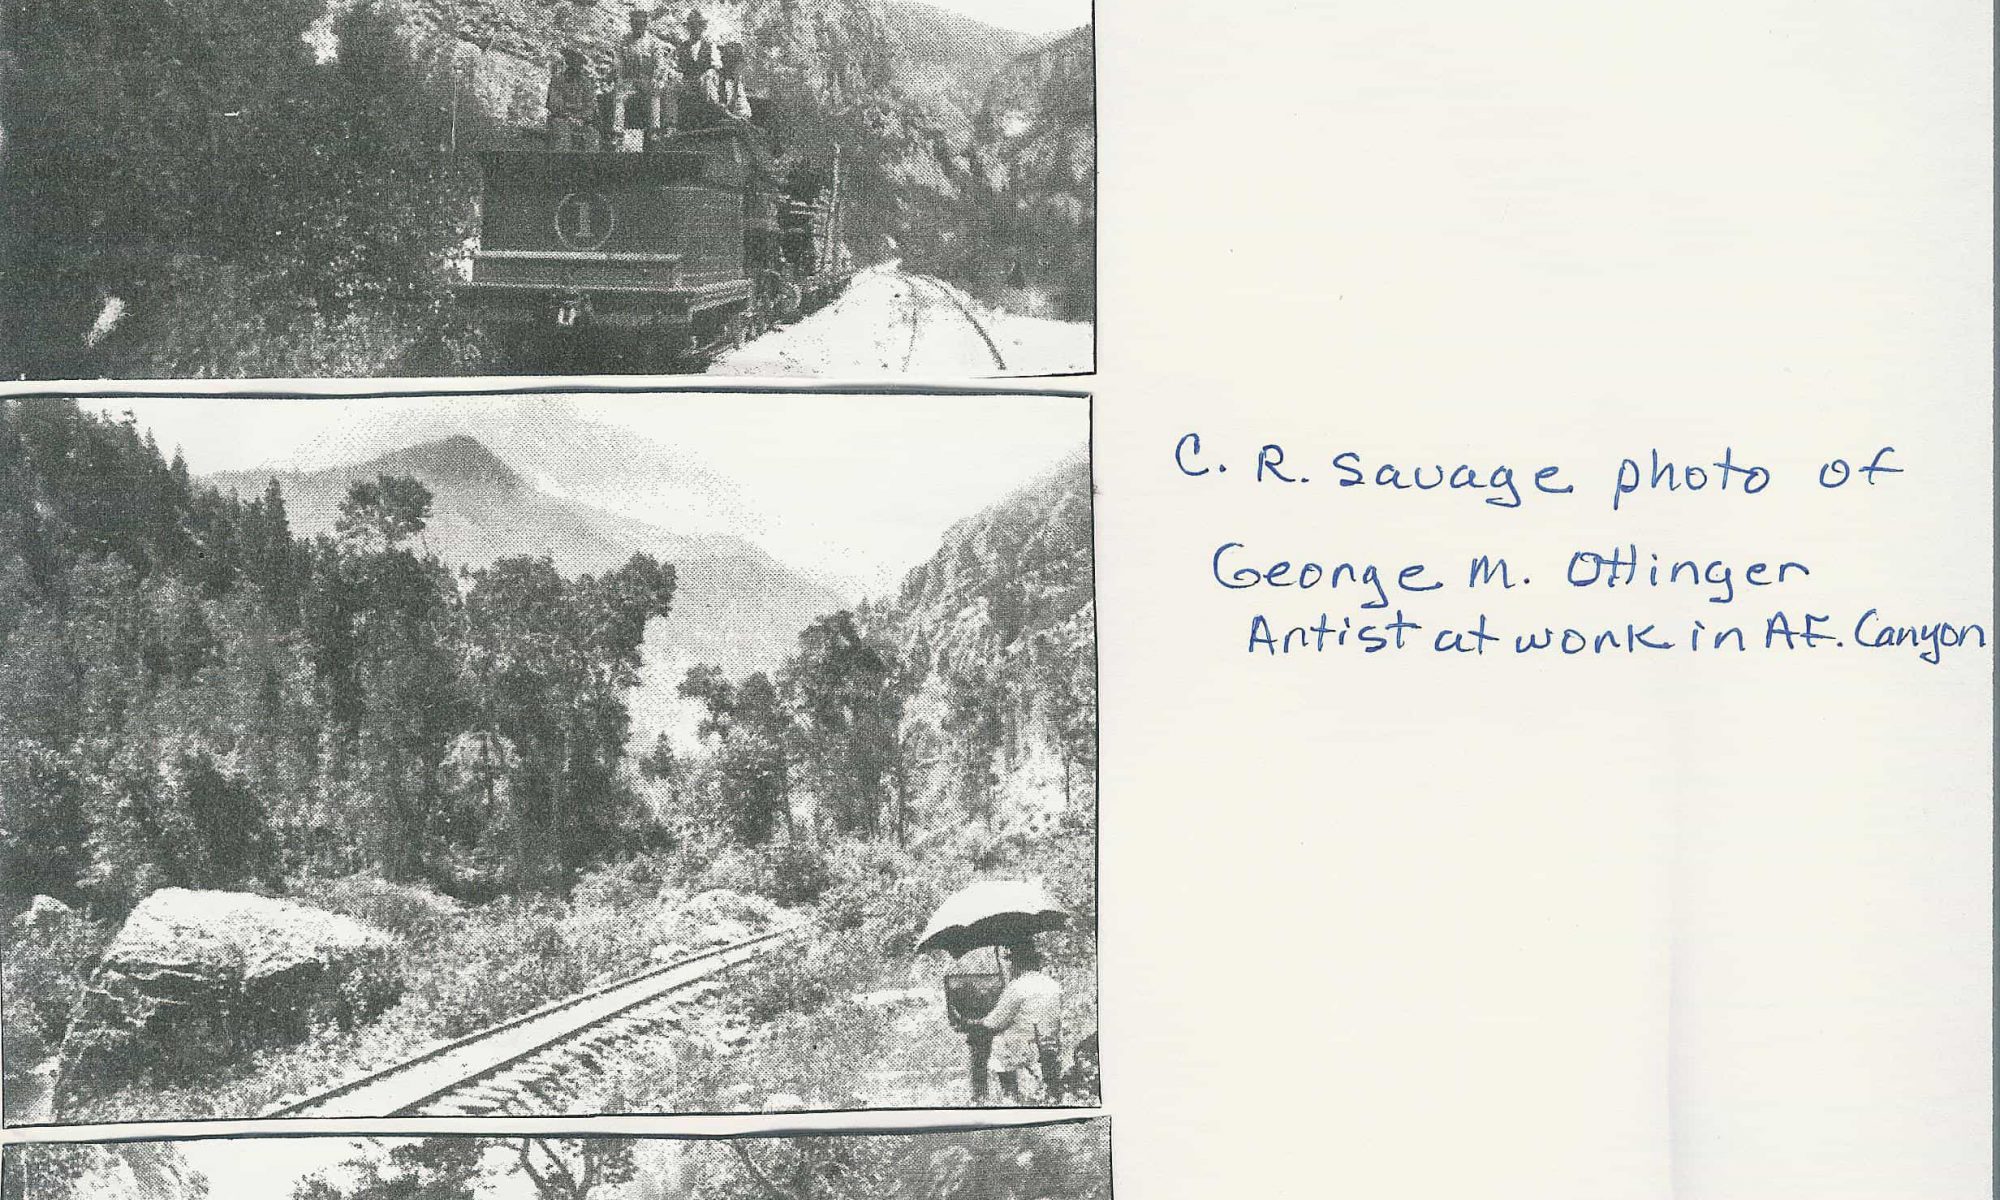 1
C. R. Savage photo of
George M. Ottinger
Artist at work in A.F. Canyon